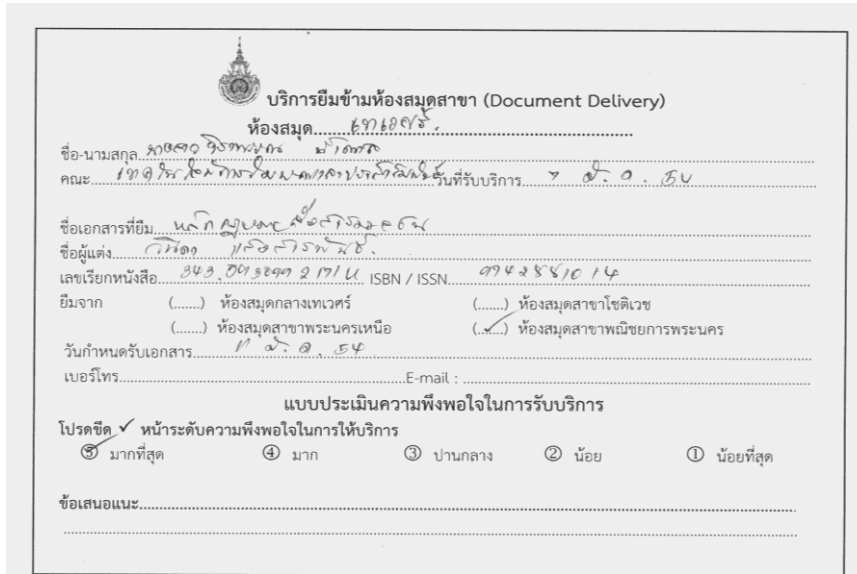 บริการยืมข้ามห้องสมุดสาขา (Document Delivery)
ห้องสมุด เทเวศร์.
ชื่อ-นามสกุล นางสาว
คณะ วันที่รับบริการ 7 มี.ค. 54
ชื่อเอกสารที่ยืม หลักกฎหมายสื่อสารมวลชน
ชื่อผู้แต่ง วนิดา แสงสารพันธ์.
เลขเรียกหนังสือ ISBN / ISSN 9742881014
ยืมจาก (.......) ห้องสมุดกลางเทเวศร์ (.......) ห้องสมุดสาขาโชติเวช
(.......) ห้องสมุดสาขาพระนครเหนือ (..✓..) ห้องสมุดสาขาพณิชยการพระนคร
วันกำหนดรับเอกสาร 11 มี.ค. 54
เบอร์โทร E-mail :
แบบประเมินความพึงพอใจในการรับบริการ
โปรดขีด ✓ หน้าระดับความพึงพอใจในการให้บริการ
⑤ มากที่สุด ④ มาก ③ ปานกลาง ② น้อย ① น้อยที่สุด
ข้อเสนอแนะ